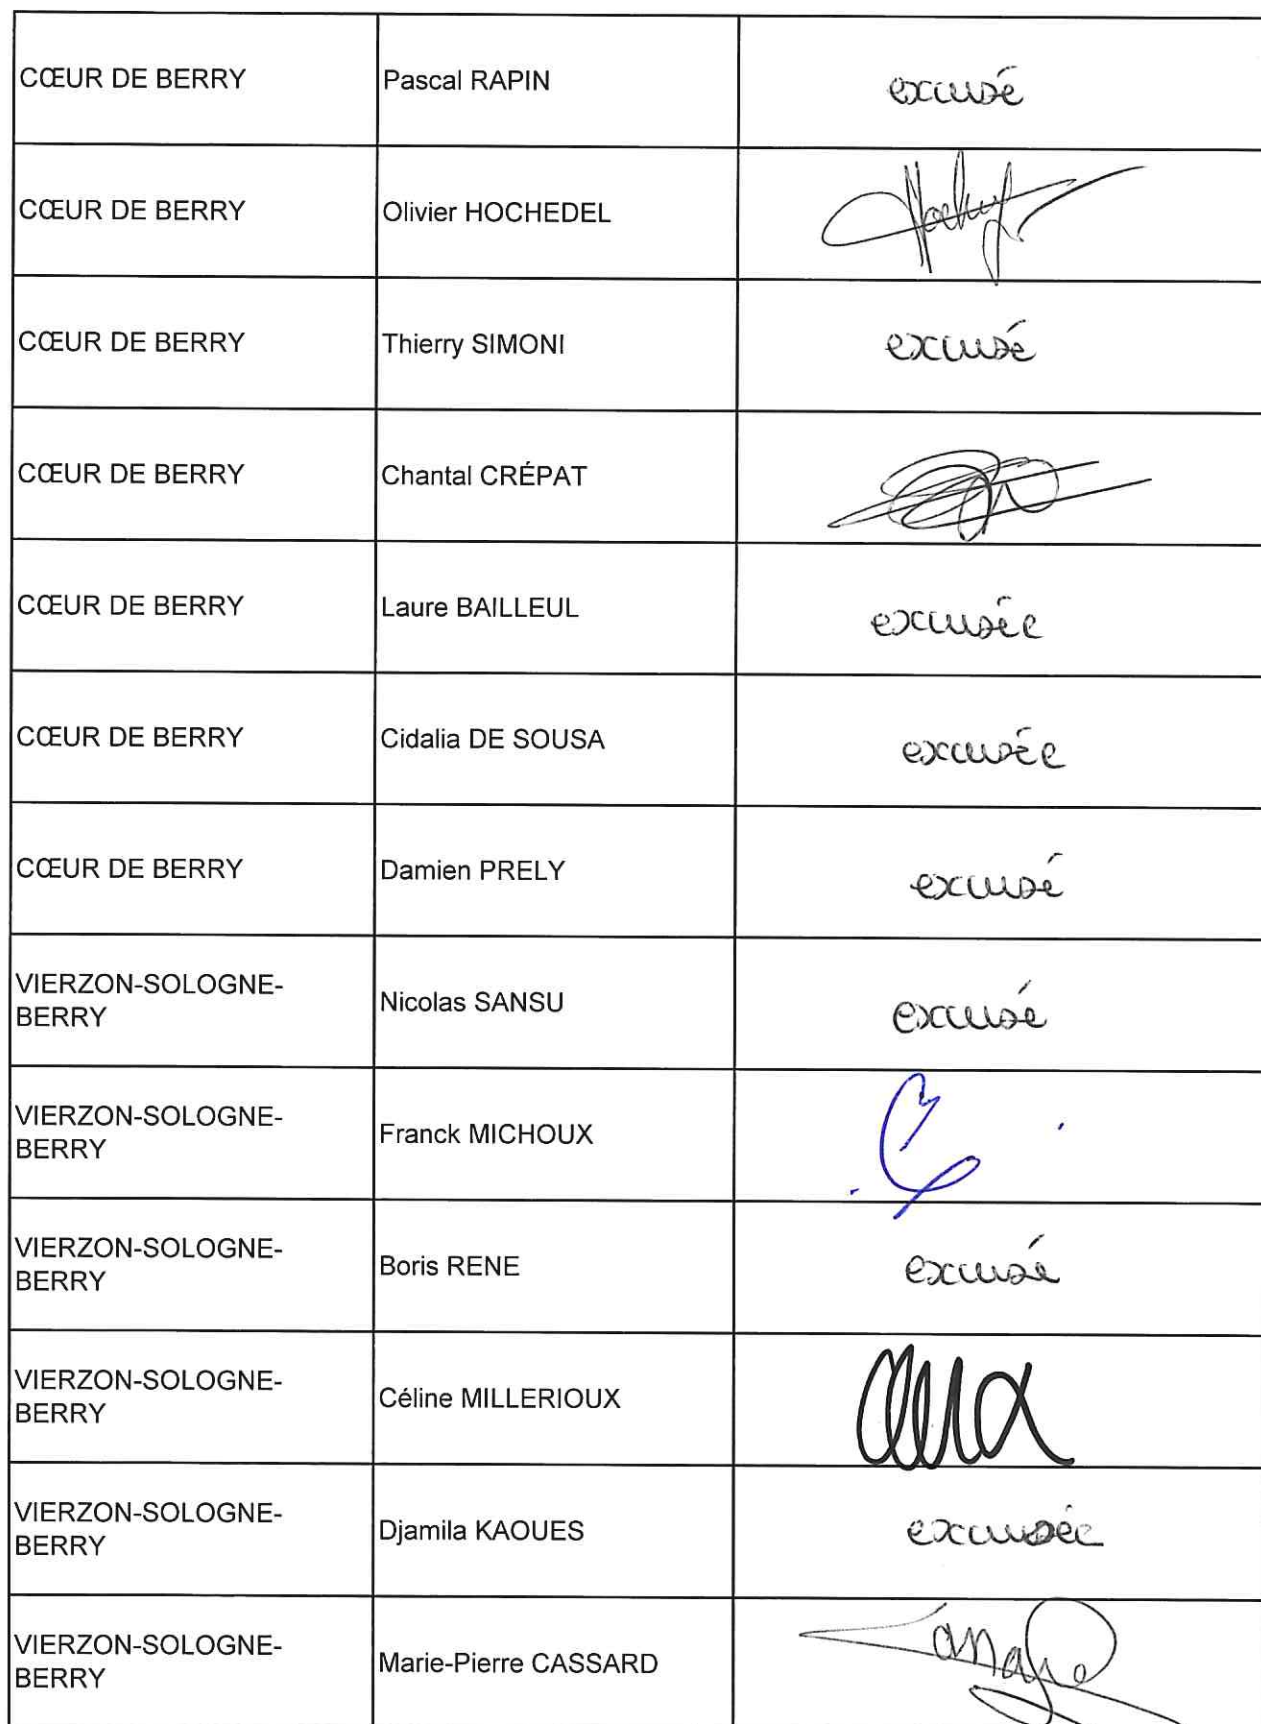 CŒUR DE BERRY
Pascal RAPIN
excusé
CŒUR DE BERRY
Olivier HOCHEDEL
CŒUR DE BERRY
Thierry SIMONI
excusé
CŒUR DE BERRY
Chantal CRÉPAT
CŒUR DE BERRY
Laure BAILLEUL
excusée
CŒUR DE BERRY
Cidalia DE SOUSA
excusée
CŒUR DE BERRY
Damien PRELY
excusé
VIERZON-SOLOGNE-
BERRY
Nicolas SANSU
excusé
VIERZON-SOLOGNE-
BERRY
Franck MICHOUX
VIERZON-SOLOGNE-
BERRY
Boris RENE
excusé
VIERZON-SOLOGNE-
BERRY
Céline MILLERIOUX
VIERZON-SOLOGNE-
BERRY
Djamila KAOUES
excusée
VIERZON-SOLOGNE-
BERRY
Marie-Pierre CASSARD